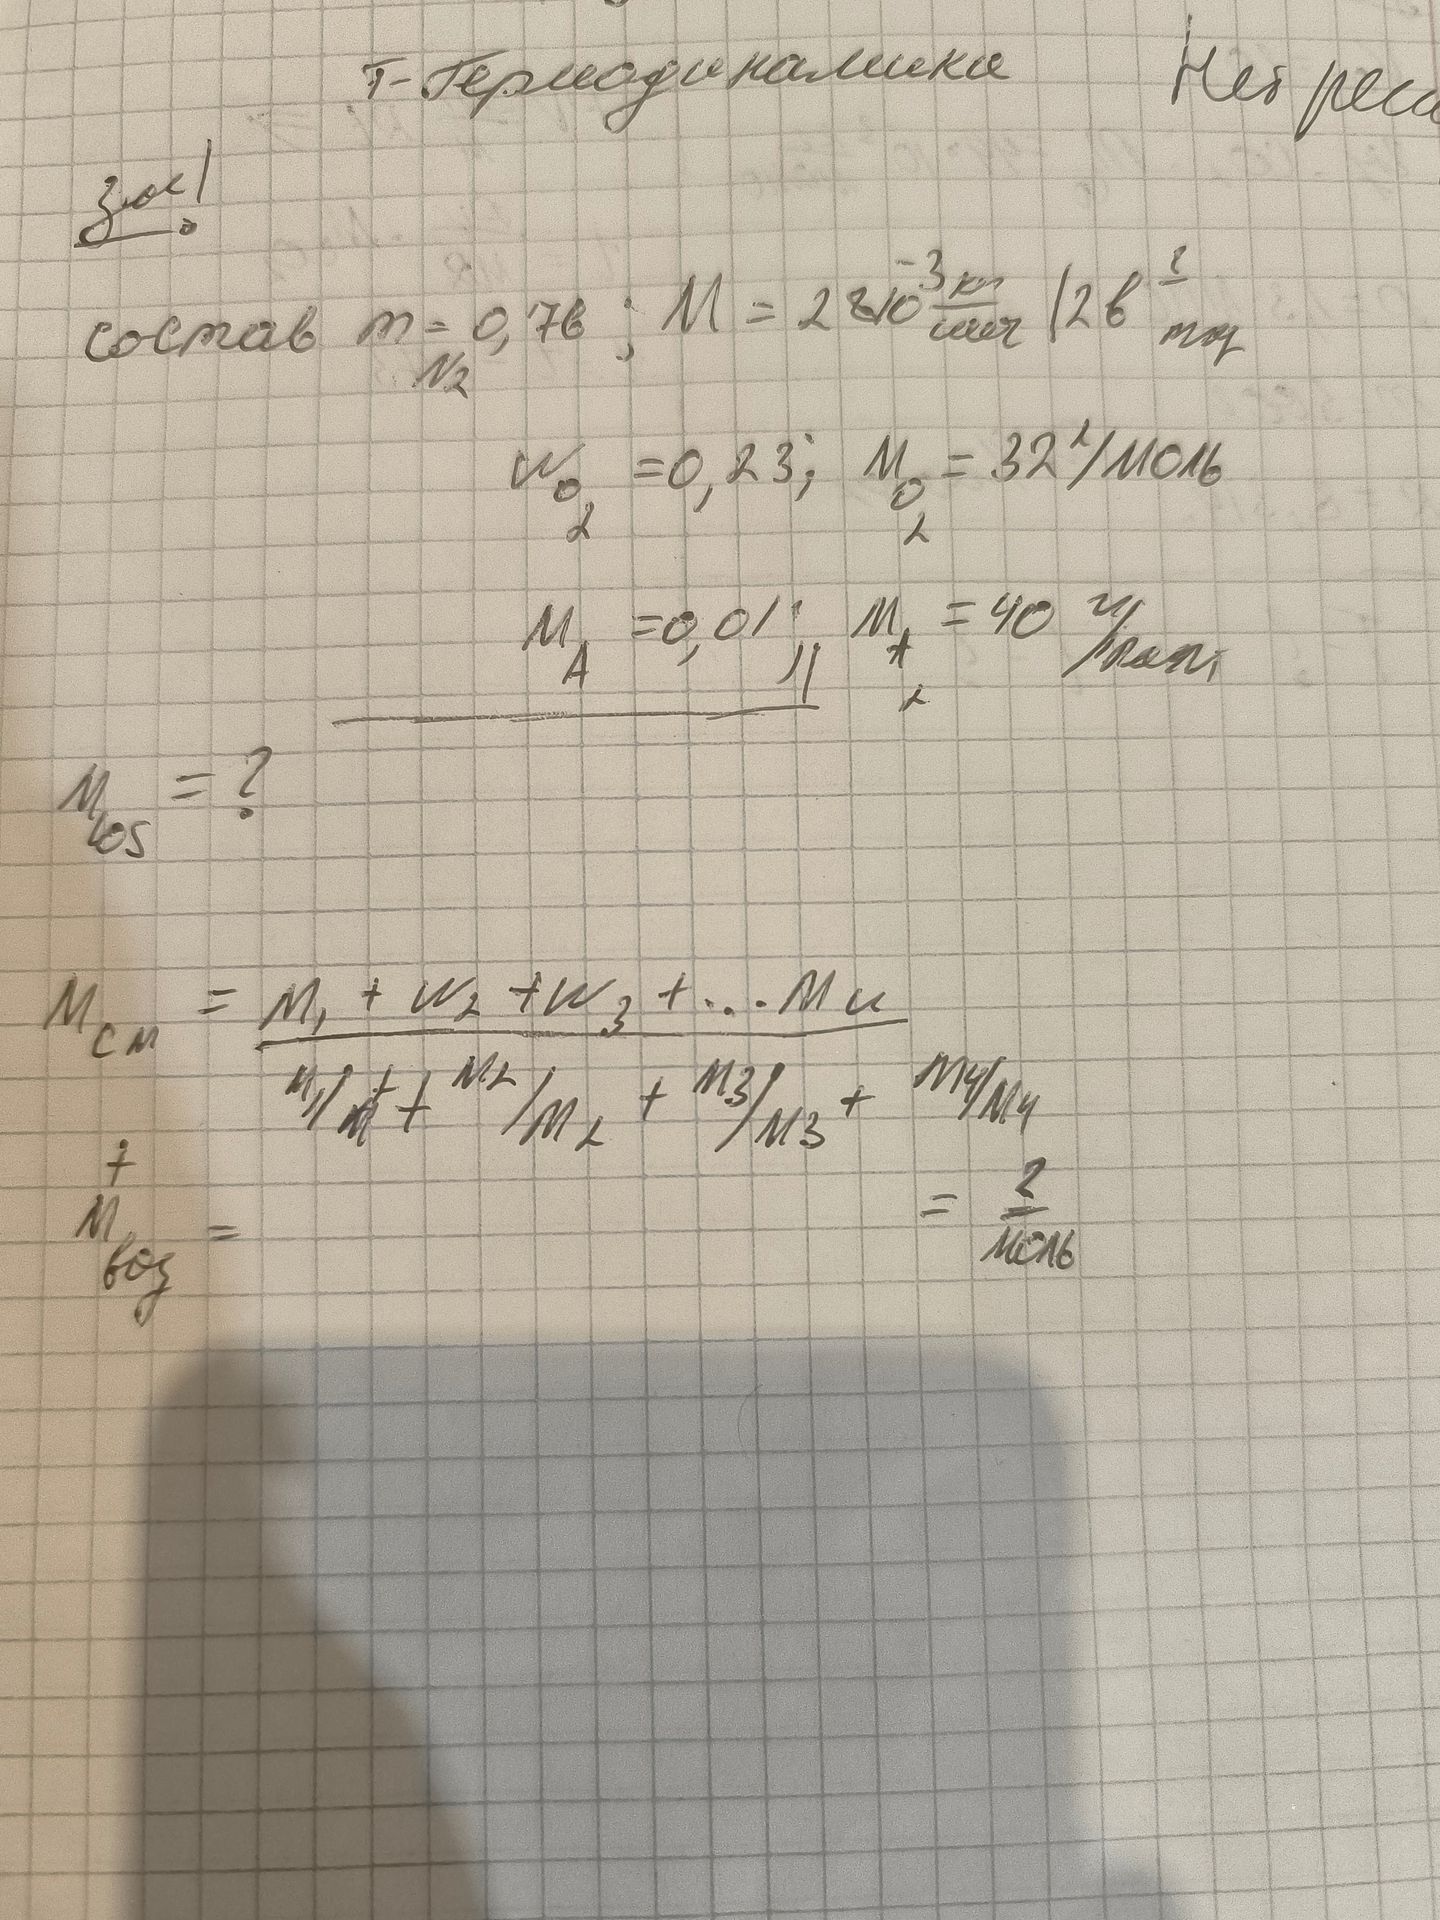 T-Термодинамика Нет реш
зос!
состав m N2 = 0,78; M = 28·10^-3 кг/моль | 28 г/моль
m O2 = 0,23; M O2 = 32 г/моль
m A = 0,01; M A2 = 40 г/моль
M воз = ?
M см = m1 + m2 + m3 + ... mn
m1/M1 + m2/M2 + m3/M3 + m4/M4
M воз = = г/моль